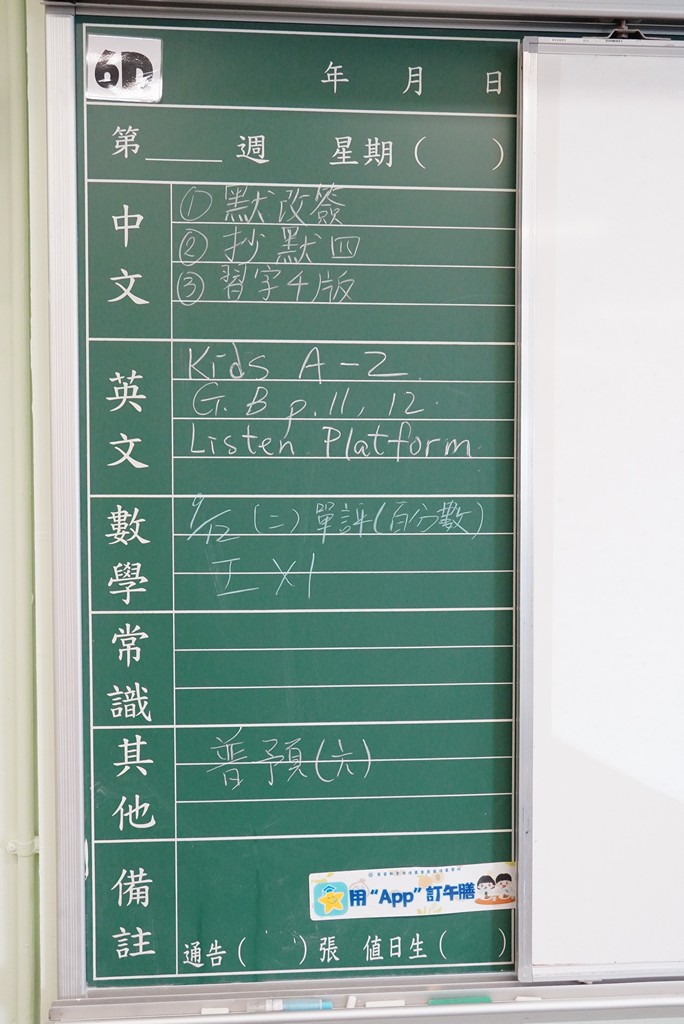 6D
年 月 日
第____週 星期( )
中文
① 默改簽
② 抄默四
③ 習字4版
英文
Kids A-Z
G.B p.11, 12.
Listen Platform
數學
9/12 (二) 單評(百分數)
工 X1
常識
其他
普預(六)
備註
用“App”訂午膳
通告( )張 值日生( )